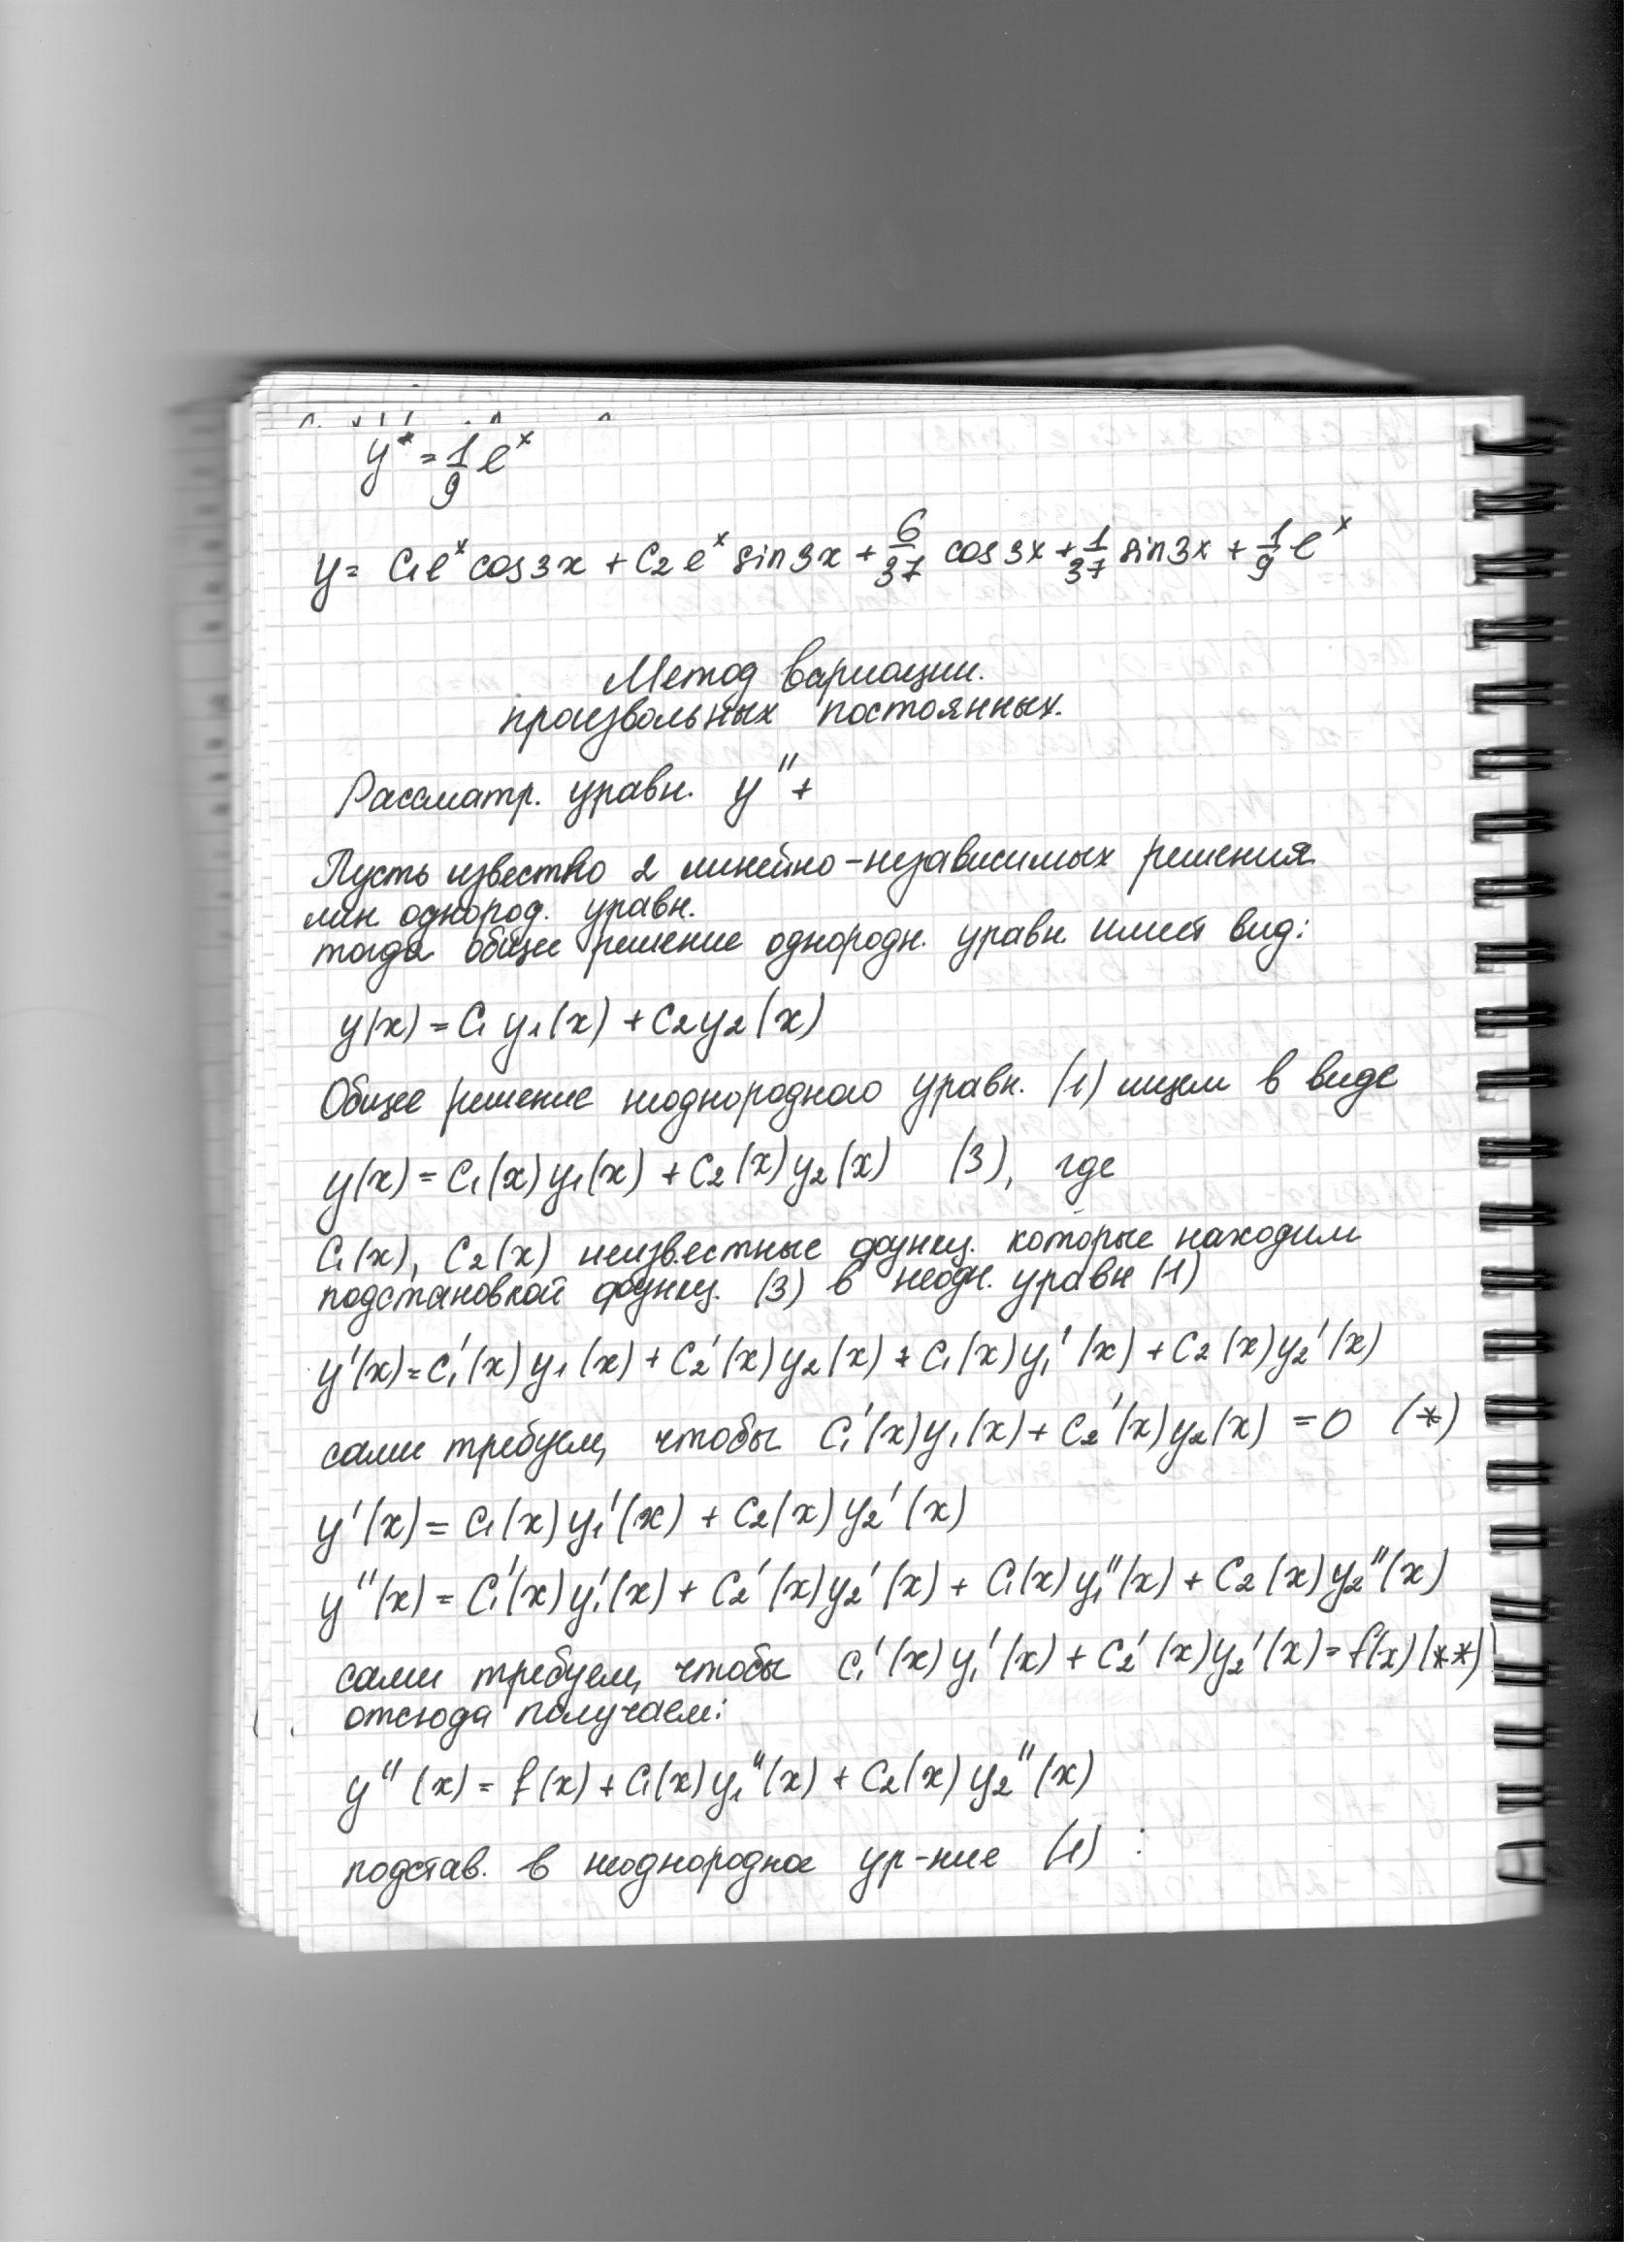 y* = 1/9 e^x
y = C₁e^x cos3x + C₂e^x sin3x + 6/37 cos3x + 1/37 sin3x + 1/9 e^x
Метод вариации.
произвольных постоянных.
Рассматр. уравн. y'' +
Пусть известно 2 линейно-независимых решения
лин. однород. уравн.
тогда общее решение однородн. уравн. имеет вид:
y(x) = C₁y₁(x) + C₂y₂(x)
Общее решение неоднородного уравн. (1) ищем в виде
y(x) = C₁(x)y₁(x) + C₂(x)y₂(x) (3), где
C₁(x), C₂(x) неизвестные функц. которые находим
подстановкой функц. (3) в неодн. уравн (1)
y'(x) = C₁'(x)y₁(x) + C₂'(x)y₂(x) + C₁(x)y₁'(x) + C₂(x)y₂'(x)
сами требуем, чтобы C₁'(x)y₁(x) + C₂'(x)y₂(x) = 0 (*)
y'(x) = C₁(x)y₁'(x) + C₂(x)y₂'(x)
y''(x) = C₁'(x)y₁'(x) + C₂'(x)y₂'(x) + C₁(x)y₁''(x) + C₂(x)y₂''(x)
сами требуем, чтобы C₁'(x)y₁'(x) + C₂'(x)y₂'(x) = f(x) (**)
отсюда получаем:
y''(x) = f(x) + C₁(x)y₁''(x) + C₂(x)y₂''(x)
подстав. в неоднородное ур-ние (1) :